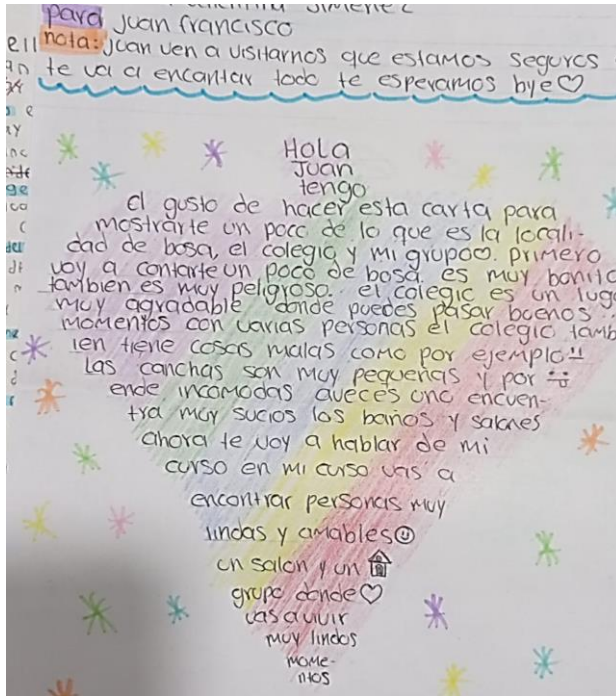 para juan francisco
nota: juan ven a visitarnos que estamos seguros
te va a encantar todo te esperamos bye
Hola
Juan
tengo
el gusto de hacer esta carta para
mostrarte un poco de lo que es la locali-
dad de bosa, el colegio y mi grupo. primero
voy a contarte un poco de bosa. es muy bonito
tambien es muy peligroso. el colegio es un lug
muy agradable donde puedes pasar buenos
momentos con varias personas el colegio tamb
ien tiene cosas malas como por ejemplo:
Las canchas son muy pequeñas y por
ende incomodas aveces uno encuen-
tra muy sucios los baños y salones
ahora te voy a hablar de mi
curso en mi curso vas a
encontrar personas muy
lindas y amables
un salon y un
grupo donde
vas a vivir
muy lindos
mome-
ntos